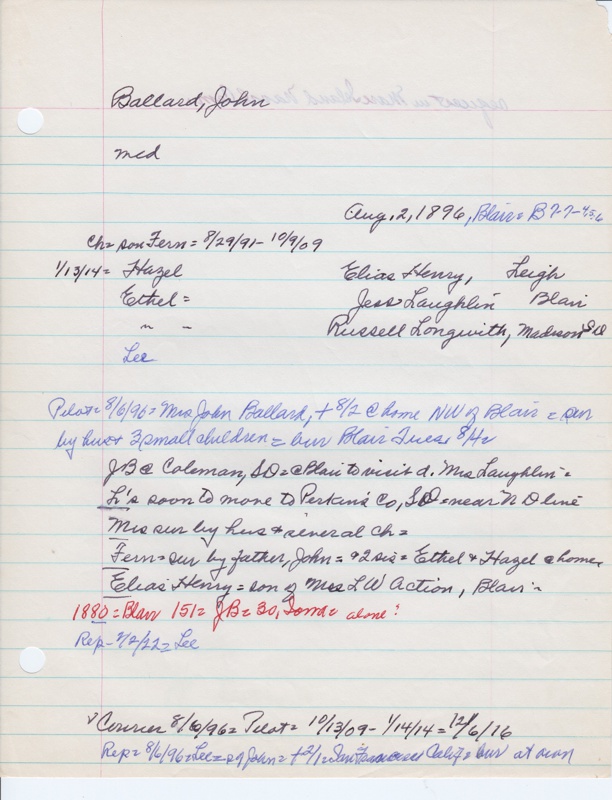 Ballard, John
mcd
Aug. 2, 1896, Blair = B 7-7-
ch = son Fern = 8/29/91 - 10/9/09
1/13/14 = Hazel Elias Henry, Leigh
Ethel = Jess Laughlin Blair
" " Russell Longwith, Madison SD
Lee
Pilot = 8/6/96 = Mrs John Ballard, + 8/2 @ home NW of Blair = sur
by hus + 3 small children = bur Blair Tues 8/4 =
JB @ Coleman, SD = @ Blair to visit d. Mrs Laughlin =
L's soon to move to Perkins Co, SD = near N D line
Mrs sur by hus + several ch =
Fern = sur by father, John = + 2 sis = Ethel + Hazel @ home
Elias Henry = son of Mrs L W Action, Blair =
1880 = Blair 151 = JB = 30, Iowa = alone?
Rep = 2/22 = Lee
Courier 8/6/96 = Pilot = 10/13/09 - 1/14/14 = 12/6/16
Rep = 8/6/96 = Lee = s of John = + 2/1 = San Francisco Calif = bur at